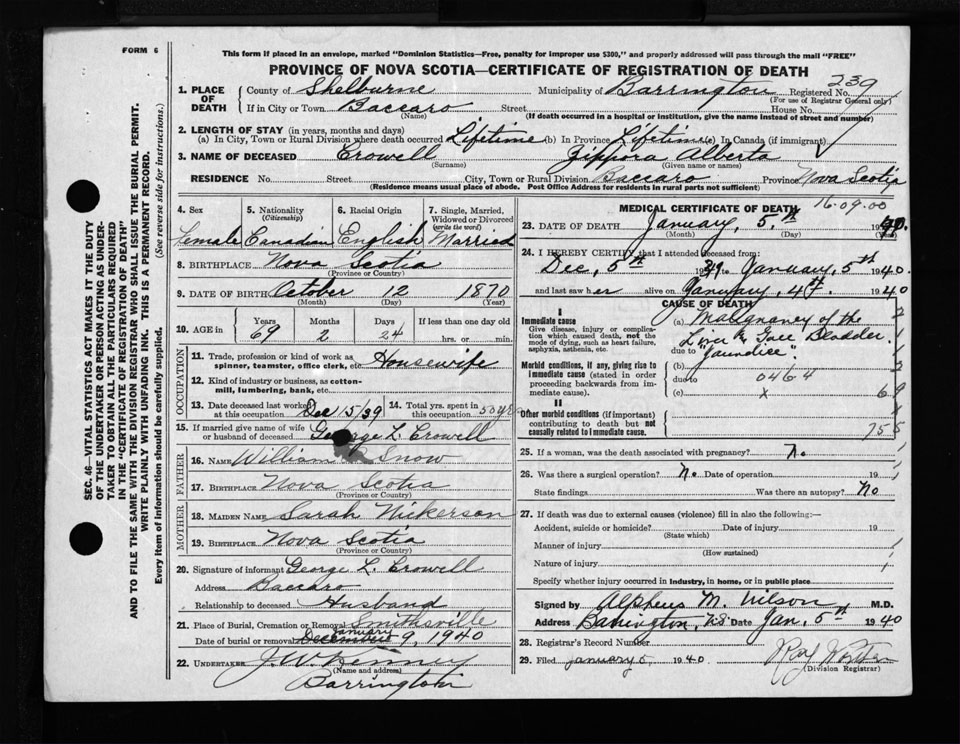 FORM 6
This form if placed in an envelope, marked "Dominion Statistics—Free, penalty for improper use $300," and properly addressed will pass through the mail "FREE"
PROVINCE OF NOVA SCOTIA—CERTIFICATE OF REGISTRATION OF DEATH
239
1. PLACE OF DEATH County of Shelburne Municipality of Barrington Registered No.
(For use of Registrar General only)
If in City or Town Baccaro Street House No.
(Name) (If death occurred in a hospital or institution, give the name instead of street and number)
2. LENGTH OF STAY (in years, months and days)
(a) In City, Town or Rural Division where death occurred Lifetime (b) In Province Lifetime (c) In Canada (if immigrant)
3. NAME OF DECEASED Crowell Zippora Alberta
(Surname) (Given name or names)
RESIDENCE No. Street City, Town or Rural Division Baccaro Province Nova Scotia
(Residence means usual place of abode. Post Office Address for residents in rural parts not sufficient)
4. Sex 5. Nationality (Citizenship) 6. Racial Origin 7. Single, Married, Widowed or Divorced (write the word)
Female Canadian English Married
8. BIRTHPLACE Nova Scotia
(Province or Country)
9. DATE OF BIRTH October 12 1870
(Month) (Day) (Year)
10. AGE in Years Months Days If less than one day
69 2 24 hrs. or min.
OCCUPATION
11. Trade, profession or kind of work as spinner, teamster, office clerk, etc. Housewife
12. Kind of industry or business, as cotton-mill, lumbering, bank, etc.
13. Date deceased last worked at this occupation Dec 15/39 14. Total yrs. spent in this occupation 50 yrs
15. If married give name of wife or husband of deceased George L. Crowell
FATHER
16. Name William Snow
17. Birthplace Nova Scotia
(Province or Country)
MOTHER
18. Maiden Name Sarah Nickerson
19. Birthplace Nova Scotia
(Province or Country)
20. Signature of informant George L. Crowell
Address Baccaro
Relationship to deceased Husband
21. Place of Burial, Cremation or Removal Smithsville
Date of burial or removal December January 9, 1940
22. UNDERTAKER J. W. Kenney
(Name and address)
Barrington
MEDICAL CERTIFICATE OF DEATH 16.09.00
23. DATE OF DEATH January, 5th 1940.
(Month) (Day) (Year)
24. I HEREBY CERTIFY that I attended deceased from:
Dec, 5th 39 to January, 5th 1940
and last saw her alive on January, 4th 1940
CAUSE OF DEATH
I
Immediate cause
Give disease, injury or complication which caused death, not the mode of dying, such as heart failure, asphyxia, asthenia, etc.
(a) Malignancy of the
Liver & Gall Bladder.
due to "Jaundice".
Morbid conditions, if any, giving rise to immediate cause (stated in order proceeding backwards from immediate cause).
(b)
due to 0464
(c) x 69
II
Other morbid conditions (if important) contributing to death but not causally related to immediate cause.
755
25. If a woman, was the death associated with pregnancy? No.
26. Was there a surgical operation? No. Date of operation 19
State findings Was there an autopsy? No
27. If death was due to external causes (violence) fill in also the following:—
Accident, suicide or homicide? Date of injury 19
(State which)
Manner of injury
(How sustained)
Nature of injury
Specify whether injury occurred in industry, in home, or in public place
Signed by Alpheus M. Wilson M.D.
Address Barrington, N.S. Date Jan. 5th 1940
28. Registrar's Record Number
29. Filed January 5, 1940
(Division Registrar)
SEC. 46—VITAL STATISTICS ACT MAKES IT THE DUTY
OF THE UNDERTAKER OR PERSON ACTING AS UNDER-
TAKER TO OBTAIN ALL THE PARTICULARS REQUIRED
IN THE "CERTIFICATE OF REGISTRATION OF DEATH"
AND TO FILE THE SAME WITH THE DIVISION REGISTRAR WHO SHALL ISSUE THE BURIAL PERMIT.
WRITE PLAINLY WITH UNFADING INK. THIS IS A PERMANENT RECORD.
Every item of information should be carefully supplied. (See reverse side for instructions.)